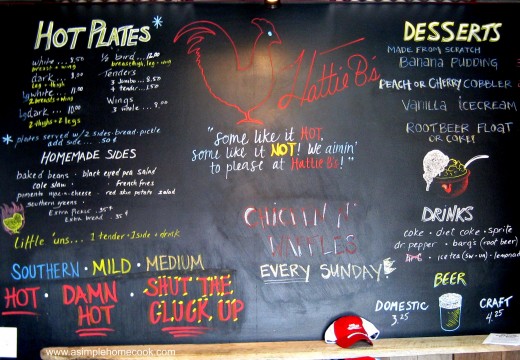 HOT PLATES*
white ... 8.50
breast + wing
dark ...
leg + thigh
lg white ... 11.00
2 breasts + wings
lg dark ...
2 thighs + 2 legs
1/2 bird ... 12.00
breast, thigh, leg + wing
Tenders
3 Jumbo ... 8.50
Wings
3 whole ... 9.00
* plates served w/2 sides-bread-pickle
add side ..... 50¢
HOMEMADE SIDES
baked beans · black eyed pea salad
cole slaw · french fries
pimento mac-n-cheese · red skin potato salad
southern greens ·
Extra Pickle .35¢
Extra bread .35¢
little 'uns... 1 tender · 1 side + drink
SOUTHERN · MILD · MEDIUM
HOT · DAMN HOT · SHUT THE CLUCK UP
Hattie B's
"Some like it HOT,
some like it NOT! We aimin'
to please at Hattie B's!"
CHICKEN N'
WAFFLES
EVERY SUNDAY!
DESSERTS
MADE FROM SCRATCH
BANANA PUDDING
PEACH OR CHERRY COBBLER
Vanilla ICECREAM
ROOTBEER FLOAT
OR COKE!
DRINKS
coke · diet coke · sprite
dr pepper · barq's (root beer)
ice tea (sw + un) · lemonade
BEER
DOMESTIC
3.25
CRAFT
4.25
www.asimplehomecook.com